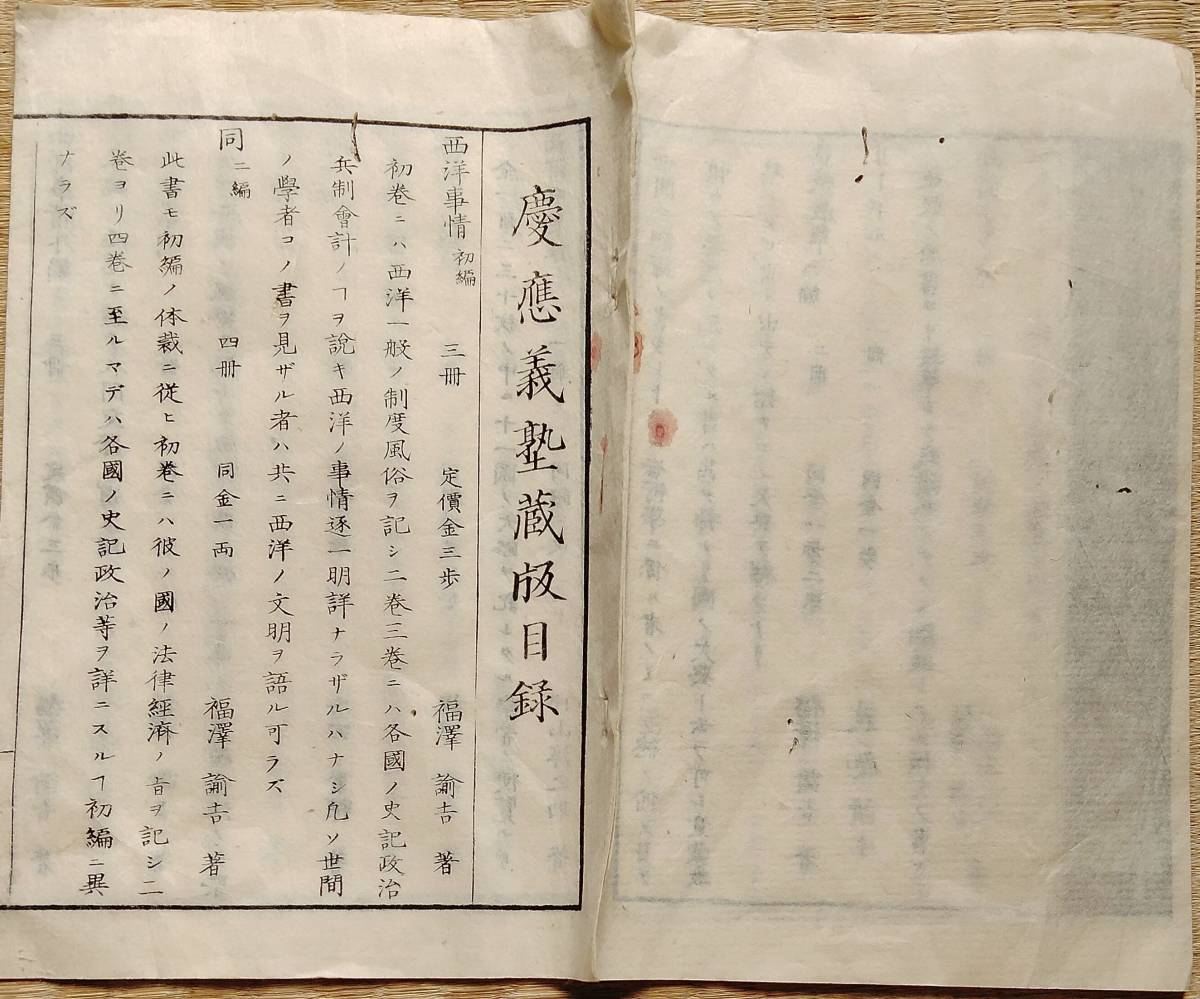 慶應義塾蔵版目録
西洋事情 初編 三冊 定價金三歩 福澤 諭吉 著
初巻ニハ西洋一般ノ制度風俗ヲ記シ二巻三巻ニハ各國ノ史記政治
兵制會計ノヿヲ説キ西洋ノ事情逐一明詳ナラザルハナシ凢ソ世間
ノ學者コノ書ヲ見ザル者ハ共ニ西洋ノ文明ヲ語ル可ラズ
同 二編 四冊 同金一両 福澤 諭吉 著
此書モ初編ノ体裁ニ従ヒ初巻ニハ彼ノ國ノ法律經濟ノ旨ヲ記シ二
巻ヨリ四巻ニ至ルマデハ各國ノ史記政治等ヲ詳ニスルヿ初編ニ異
ナラズ